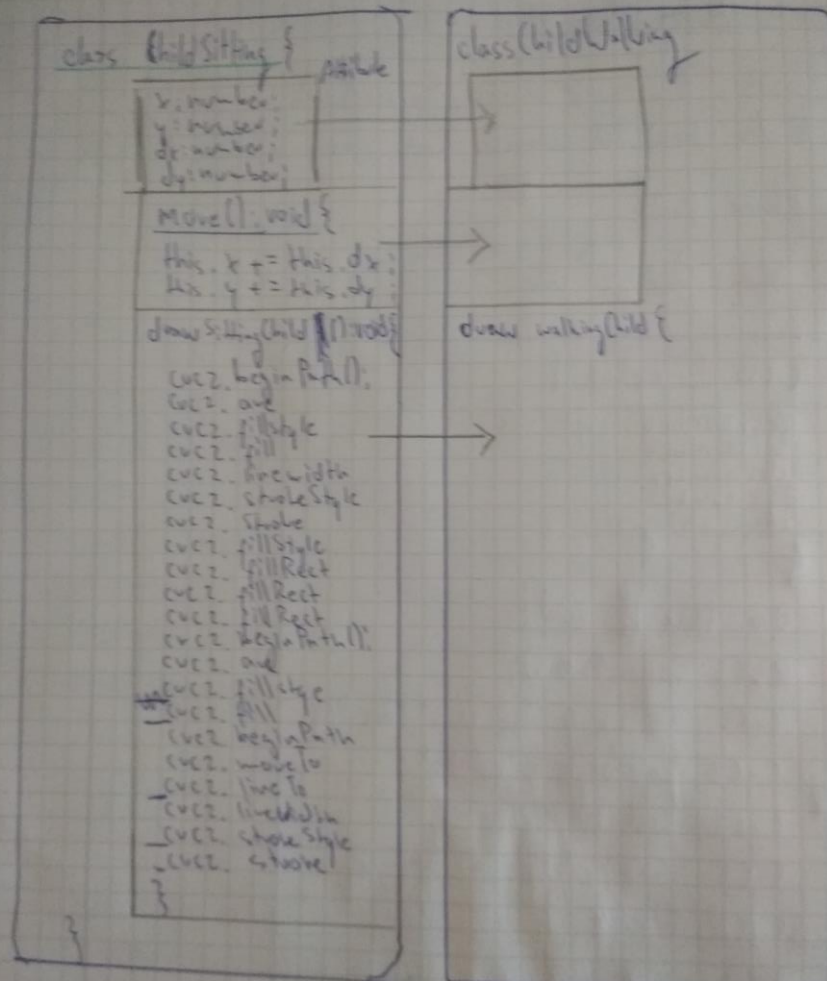 class ChildSitting {
Attribute
x: number;
y: number;
dx: number;
dy: number;
move(): void {
this. x += this. dx;
this. y += this. dy;
draw SittingChild (): void {
crc2. beginPath();
crc2. arc
crc2. fillstyle
crc2. fill
crc2. linewidth
crc2. strokeStyle
crc2. stroke
crc2. fillStyle
crc2. fillRect
crc2. fillRect
crc2. fillRect
crc2. beginPath();
crc2. arc
crc2. fillstyle
crc2. fill
crc2 beginPath
crc2. moveTo
crc2. lineTo
crc2. lineWidth
crc2. strokeStyle
crc2. stroke
}
}
class ChildWalking
draw walkingChild {